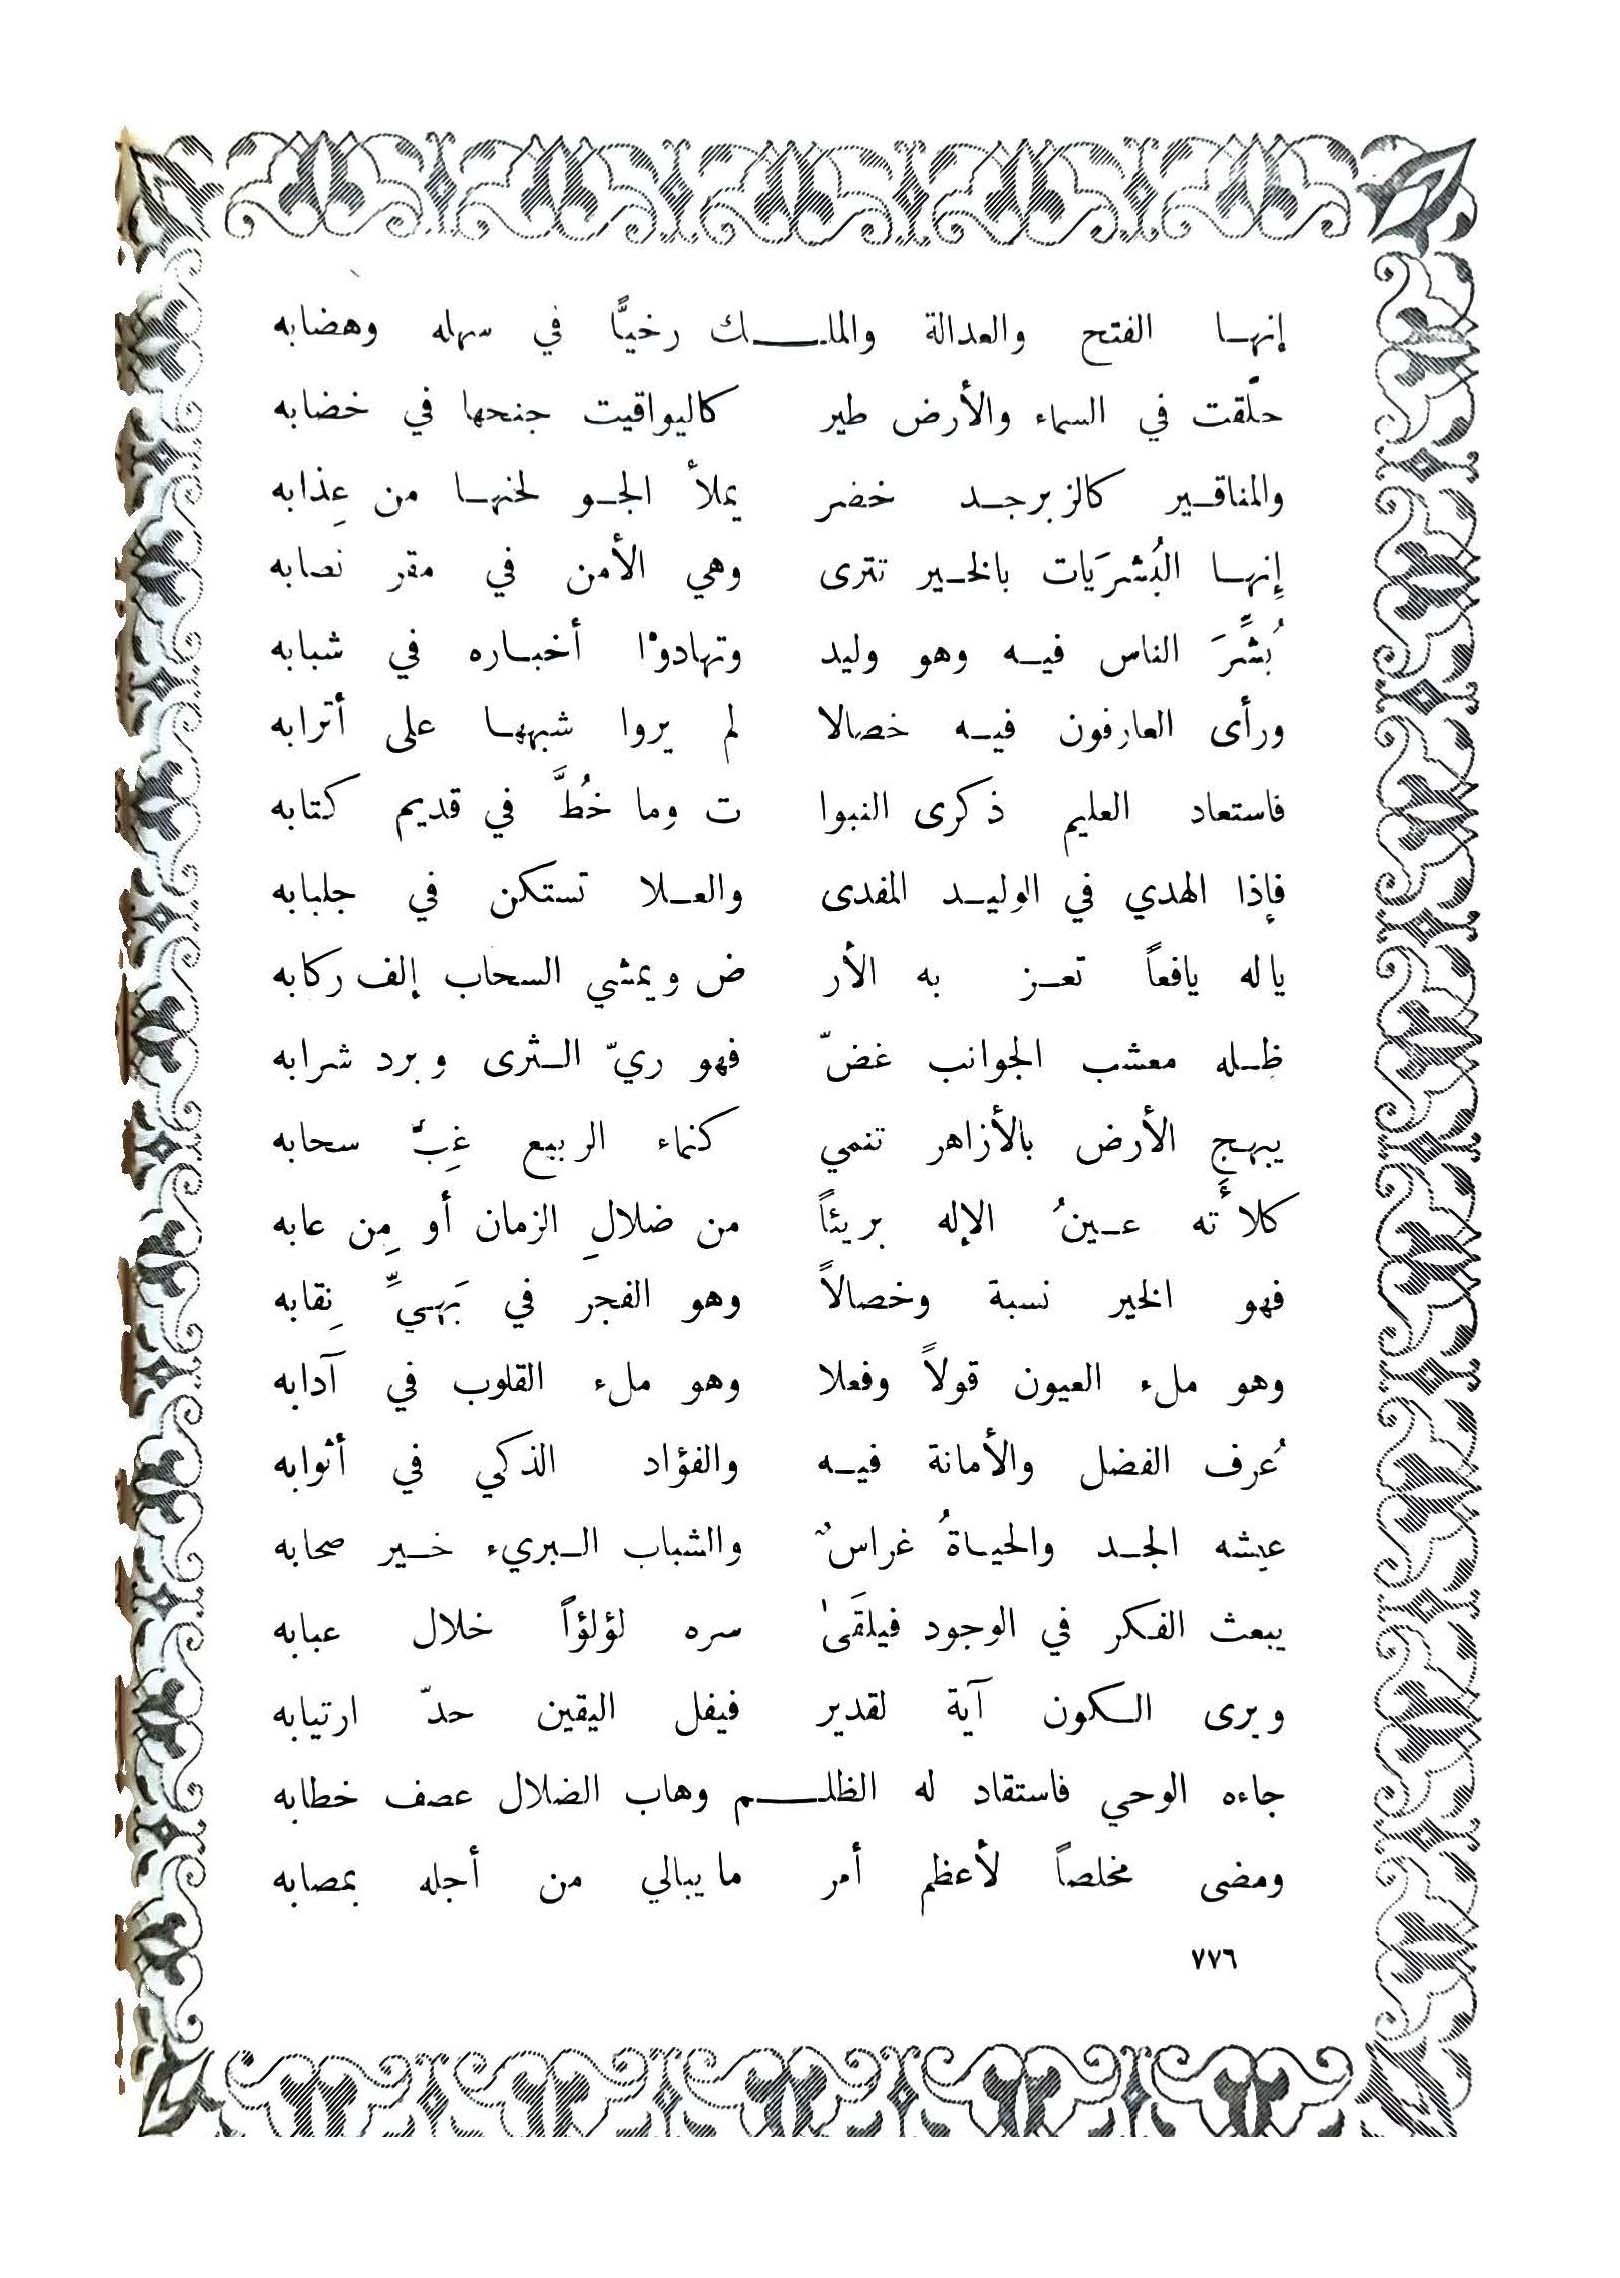 إنهـا الفتح والعدالة والملـــــك رخيًّا في سهله وهضابه
حلّقت في السماء والأرض طير كاليواقيت جنحها في خضابه
والمناقـير كالزبرجـد خضر يملأ الجـو لحنهـا من عِذابه
إِنهـا البُشرَيات بالخـير تترى وهي الأمن في مقر نصابه
بُشِّرَ الناس فيـه وهو وليد وتهادوْا أخبـاره في شبابه
ورأى العارفون فيـه خصالا لم يروا شبهها على أترابه
فاستعاد العليم ذكرى النبوا ت وما خُطَّ في قديم كتابه
فإذا الهدي في الوليـد المفدى والعـلا تستكن في جلبابه
ياله يافعاً تعـز به الأر ض ويمشي السحاب إلف ركابه
ظـله معشب الجوانب غضّ فهو ريّ الـثرى وبرد شرابه
يبهج الأرض بالأزاهر تنمي كنماء الربيع غِبَّ سحابه
كلأَته عـينُ الإله بريئاً من ضلالِ الزمان أو مِن عابه
فهو الخير نسبة وخصالاً وهو الفجر في بَهيِّ نِقابه
وهو ملء العيون قولاً وفعلا وهو ملء القلوب في آدابه
عُرف الفضل والأمانة فيـه والفؤاد الذكي في أثوابه
عيشه الجـد والحيـاةُ غراسٌ والشباب الـبريء خـير صحابه
يبعث الفكر في الوجود فيلقَىٰ سره لؤلؤاً خلال عبابه
ويرى الـكون آية لقدير فيفل اليقين حدّ ارتيابه
جاءه الوحي فاستقاد له الظلـــــم وهاب الضلال عصف خطابه
ومضى مخلصاً لأعظم أمر مايبالي من أجله بمصابه
٧٧٦